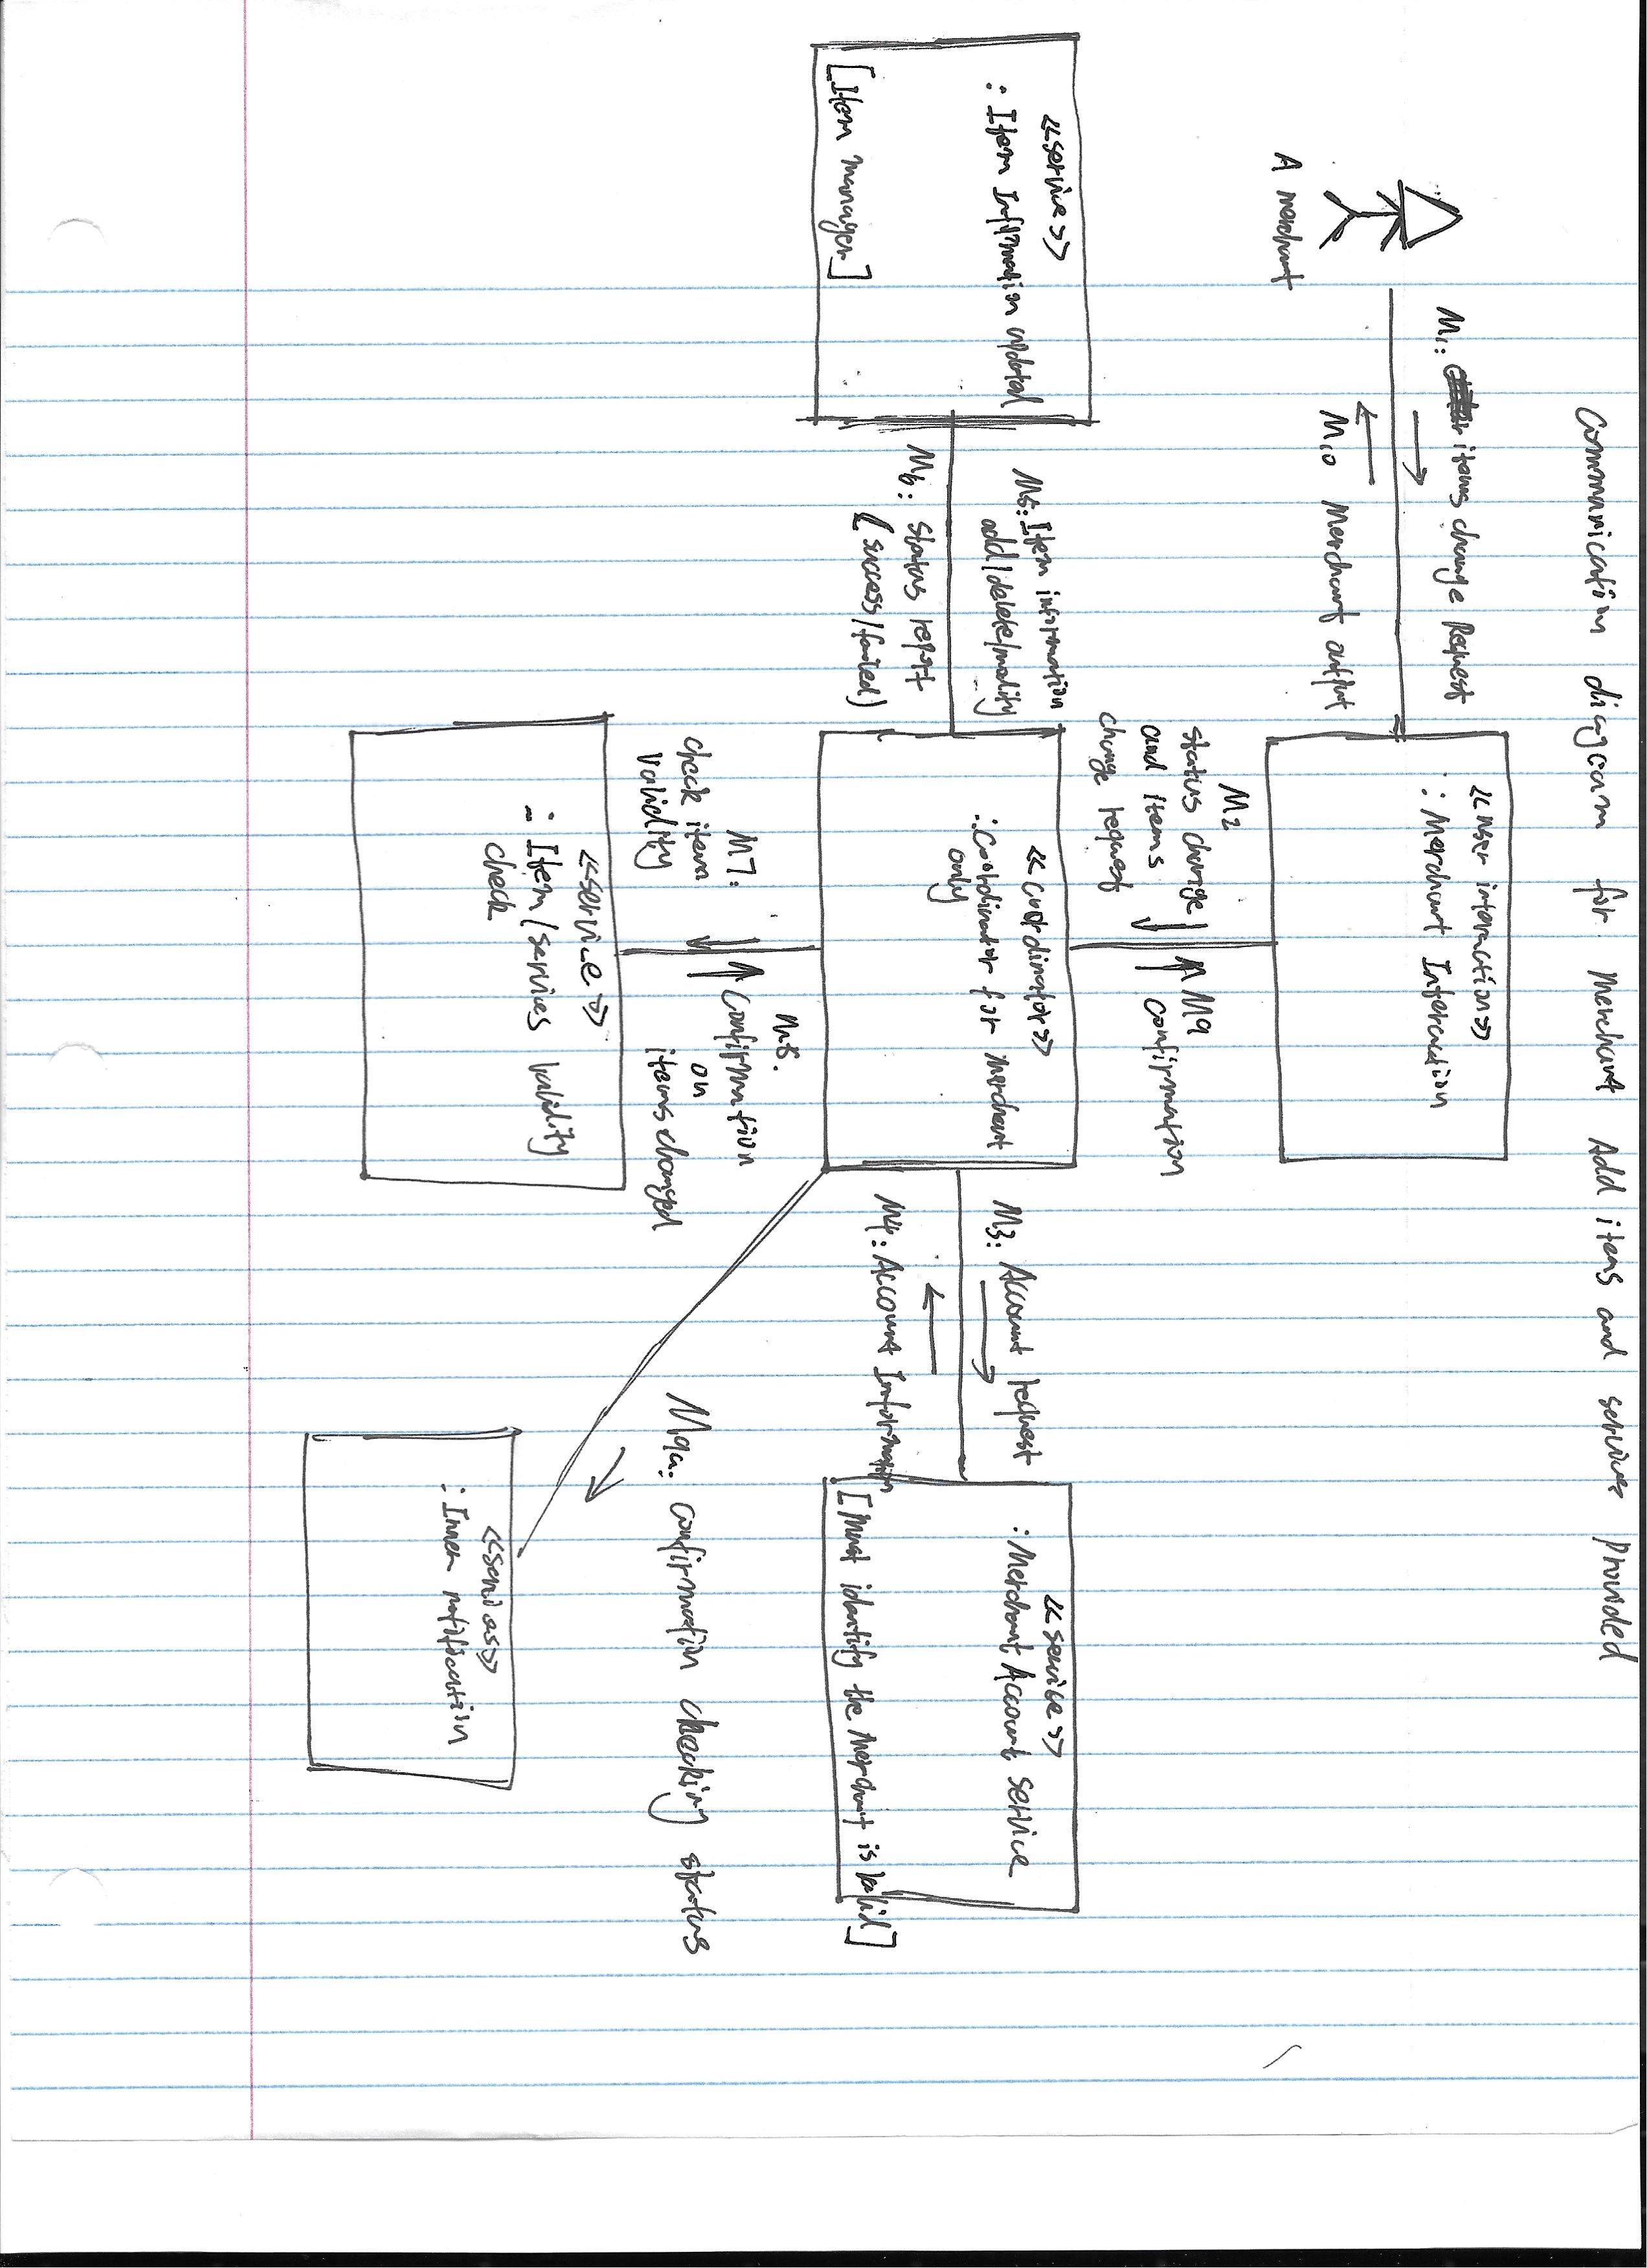 Communication diagram for Merchant Add items and services Provided
M1: items change Request
M10 Merchant output
A merchant
<<user interaction>>
: Merchant Interaction
M2
status change
and items
change request
M9
confirmation
<<service>>
: Item Information updated
[Item manager]
M5: Item information
add/delete/modify
M6: status report
(success/failed)
<<coordinator>>
: Coordinator for Merchant
only
M3: Account request
M4: Account Information
<<service>>
: Merchant Account service
[Must identify the Merchant is valid]
M7:
check item
validity
M8.
Confirmation
on
items changed
M9a: confirmation checking status
<<service>>
: Item/services validity
check
<<services>>
: Inner notification